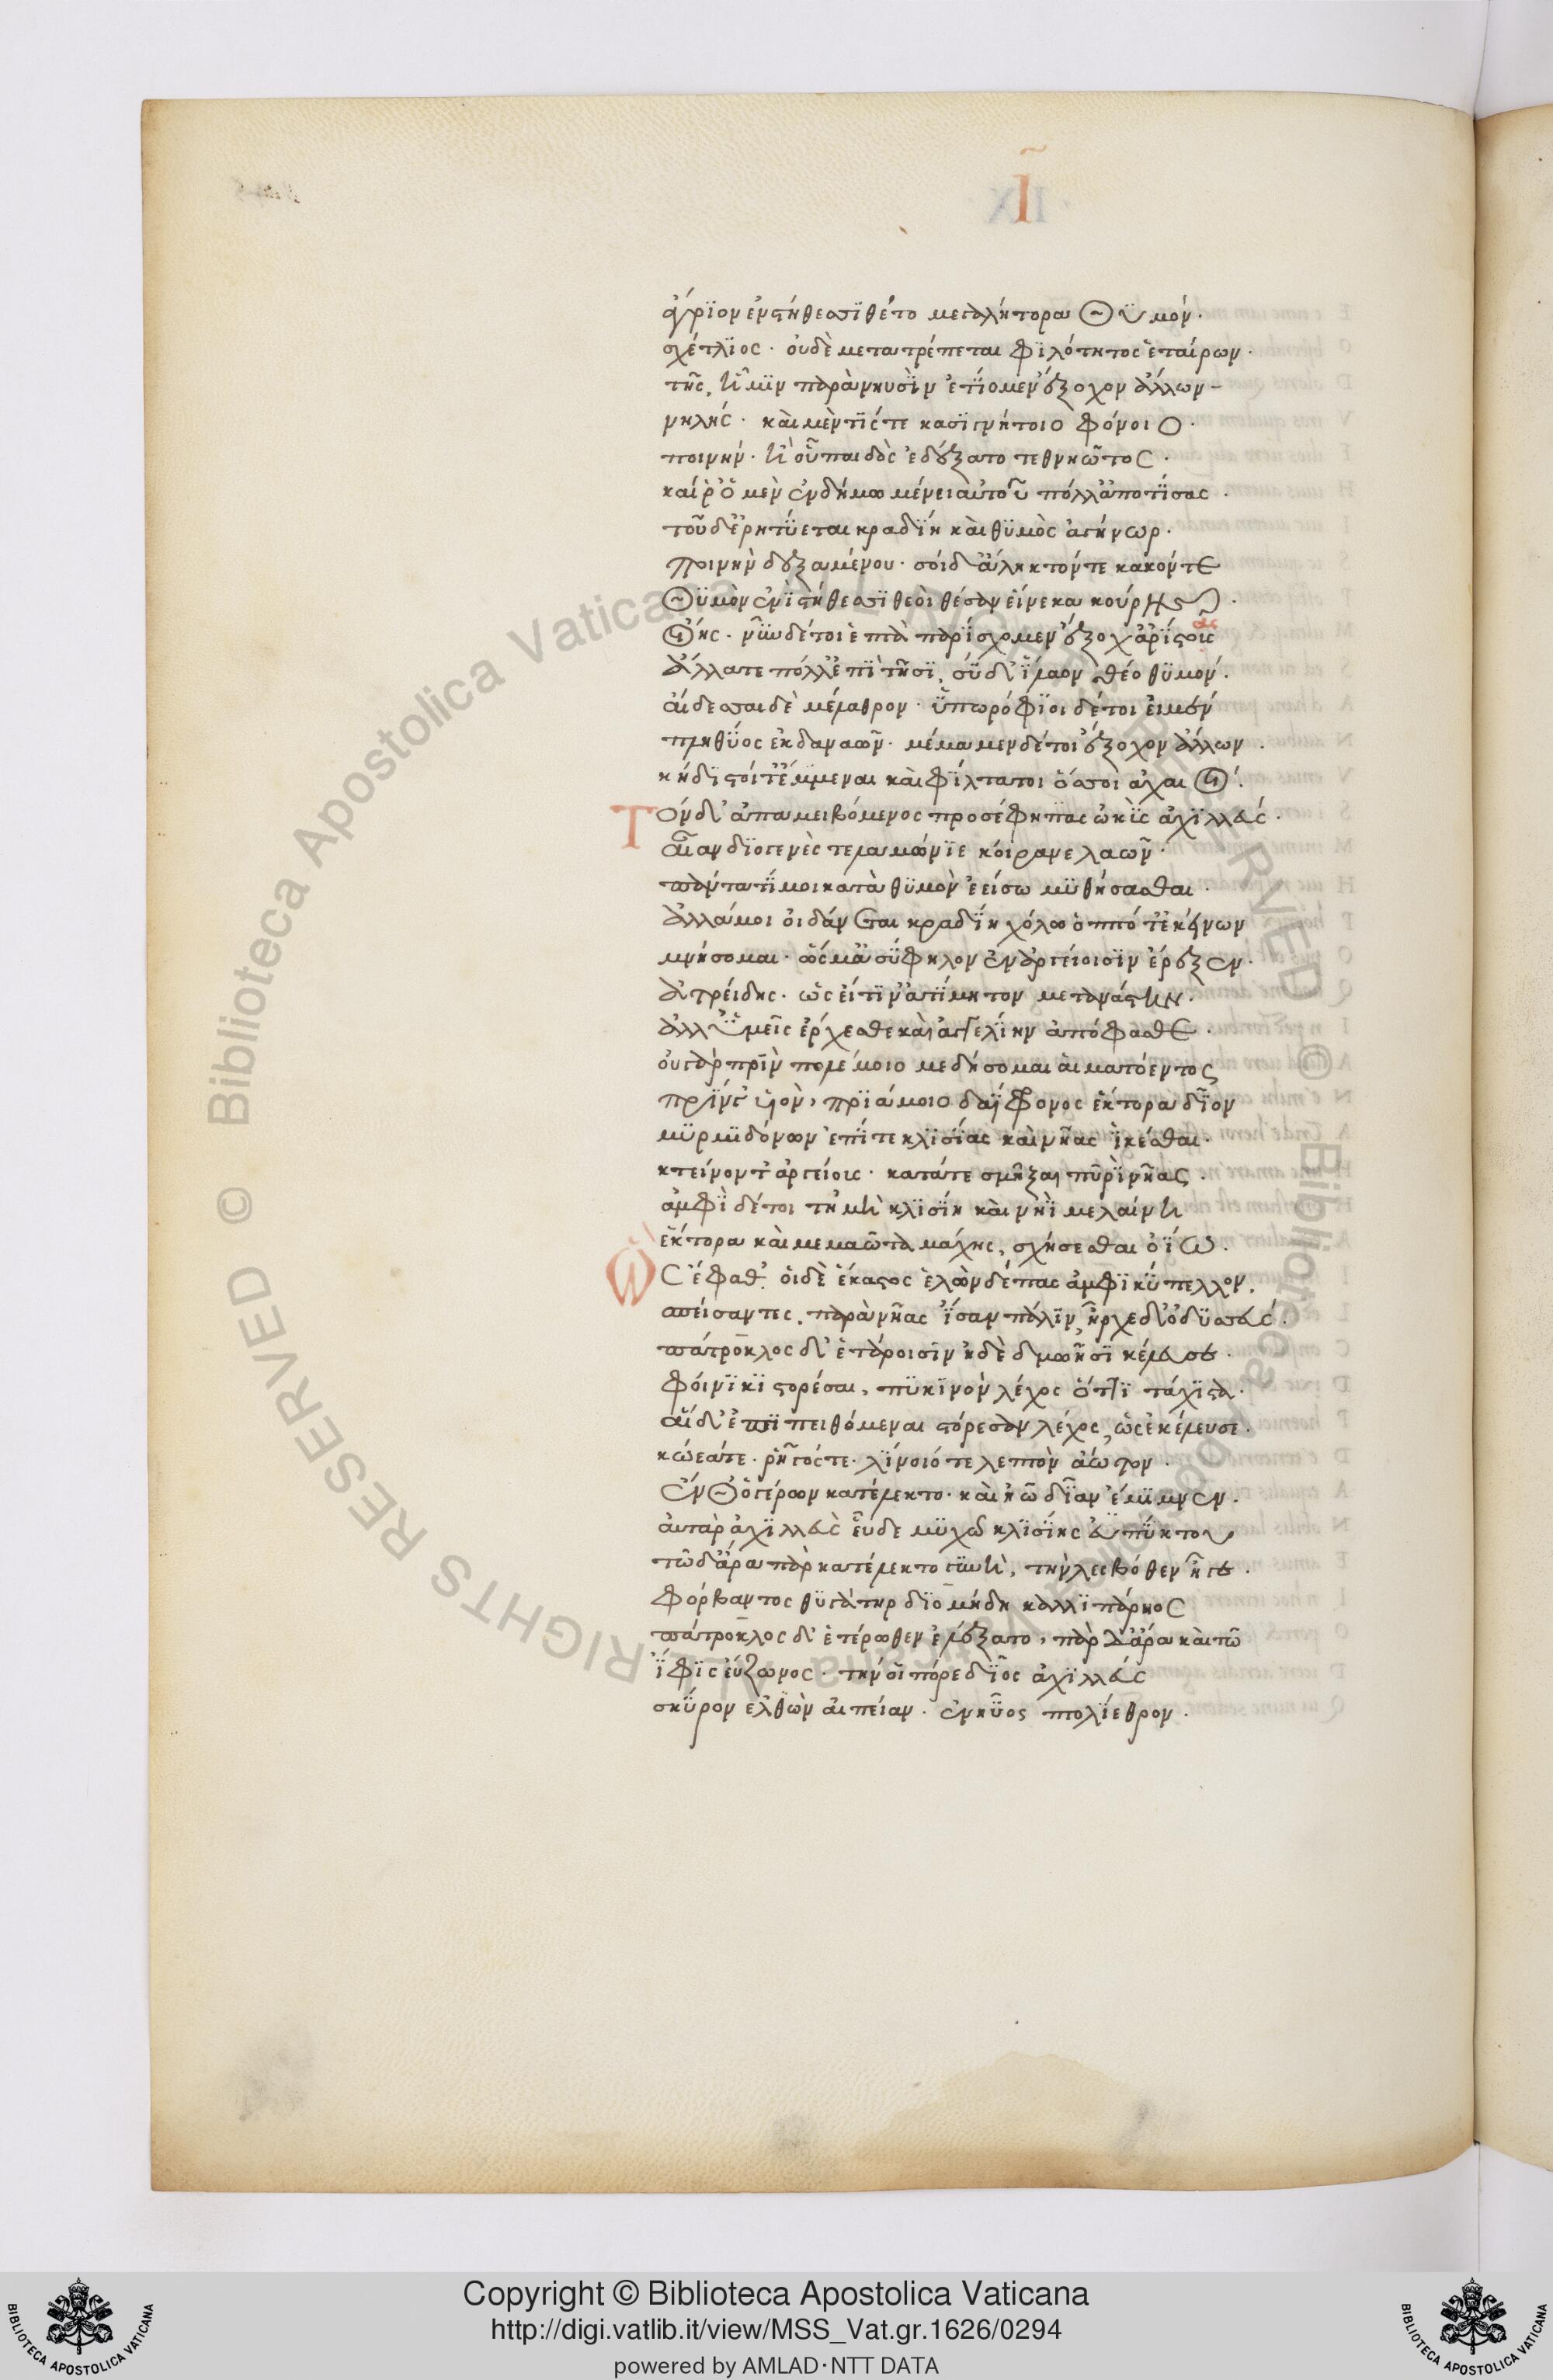 Ι̃
ἄγριον ἐν στήθεσσι θέτο μεγαλήτορα Θυμόν.
σχέτλϊος. οὐδὲ μετατρέπεται φϊλότητος ἑταίρων.
τῆς, ᾗ μϊν παρὰ νηυσῒν ἐτίομεν ἔξοχον ἄλλων
νηλής. καὶ μέν τίς τε κασϊγνήτοιο φόνοιο.
ποινήν. ἢ οὗ παιδὸς ἐδέξατο τεθνηῶτος.
καί ῥ' ὃ μὲν ἐν δήμω μένει αὐτοῦ πόλλ' ἀποτίσας.
τοῦ δ' ἐρητύεται κραδΐη καὶ θϋμὸς ἀγήνωρ.
ποινὴν δεξαμένου. σοὶ δ' ἄληκτόν τε κακόν τε
Θϋμὸν ἐνὶ στήθεσσϊ θεοὶ θέσαν εἵνεκα κούρης
οἴης. νῦν δέ τοι ἑπτὰ παρΐσχομεν ἔξοχ' ἀρΐστοις
ας
ἄλλα τε πόλλ' ἐπῒ τῆσϊ, σὺ δ' ἵλαον ἔνθεο θϋμόν.
αἴδεσσαι δὲ μέλαθρον. ὑπωρόφϊοι δέ τοι εἰμέν
πληθύος ἐκ δαναῶν. μέμαμεν δέ τοι ἔξοχον ἄλλων.
κήδϊστοί τ' ἔμμεναι καὶ φΐλτατοι ὅσσοι ἀχαιοί.
Τὸν δ' ἀπαμειβόμενος προσέφη πόδας ὠκὺς ἀχϊλλεύς.
αἶαν δϊογενὲς τελαμώνϊε κοίρανε λαῶν.
πάντα τί μοι κατὰ θϋμὸν ἐείσω μϋθήσασθαι.
ἀλλά μοι οἰδάνεται κραδΐη χόλω ὁππότ' ἐκείνων
μνήσομαι. ὥς μ' ἀσύφηλον ἐν ἀργείοισϊν ἔρεξεν.
ἀτρείδης. ὡς εἴ τϊν' ἀτίμητον μετανάστην.
ἀλλ' ὑμεῖς ἔρχεσθε καὶ ἀγγελΐην ἀπόφασθε.
οὐ γὰρ πρῒν πολέμοιο μεδήσομαι αἱματόεντος
πρΐν γ' ὑϊὸν, πρϊάμοιο δαΐφρονος ἕκτορα δῖον
μϋρμϊδόνων ἐπΐ τε κλϊσΐας καὶ νῆας ἱκέσθαι.
κτείνοντ' ἀργείους. κατά τε σμῆξαι πϋρῒ νῆας.
ἀμφῒ δέ τοι τῆ μῆ κλϊσΐη καὶ νηῒ μελαίνη
ἕκτορα καὶ μεμαῶτα μάχης, σχήσεσθαι ὀΐω.
Ὣς ἔφαθ'. οἱ δὲ ἕκαστος ἑλὼν δέπας ἀμφϊκύπελλον,
σπείσαντες, παρὰ νῆας ἴσαν πάλϊν, ἦρχε δ' ὀδϋσσεύς.
πάτροκλος δ' ἑτάροισϊν ἠδὲ δμωῆσϊ κέλευσε.
φοίνϊκϊ στορέσαι, πϋκϊνὸν λέχος ὅττϊ τάχϊστα.
αἳ δ' ἐπϊπειθόμεναι στόρεσαν λέχος, ὡς ἐκέλευσε.
κώεά τε. ῥῆγός τε. λΐνοιό τε λεπτὸν ἄωτον.
ἔνθ' ὁ γέρων κατέλεκτο. καὶ ἠῶ δῖαν ἔμϊμνεν.
αὐτὰρ ἀχϊλλεὺς εὗδε μϋχῶ κλϊσΐης εὐπήκτου
τῶ δ' ἄρα παρκατέλεκτο γϋνὴ, τὴν λεσβόθεν ἦγε.
φόρβαντος θϋγάτηρ δϊομήδη καλλϊπάρηος
πάτροκλος δ' ἑτέρωθεν ἐλέξατο, πὰρ δ' ἄρα καὶ τῶ
ἶφϊς ἐύζωνος. τήν οἱ πόρε δῖος ἀχϊλλεύς
σκῦρον ἑλὼν αἰπείαν. ἐνυῆος πτολΐεθρον.
Copyright © Biblioteca Apostolica Vaticana
http://digi.vatlib.it/view/MSS_Vat.gr.1626/0294
powered by AMLAD·NTT DATA